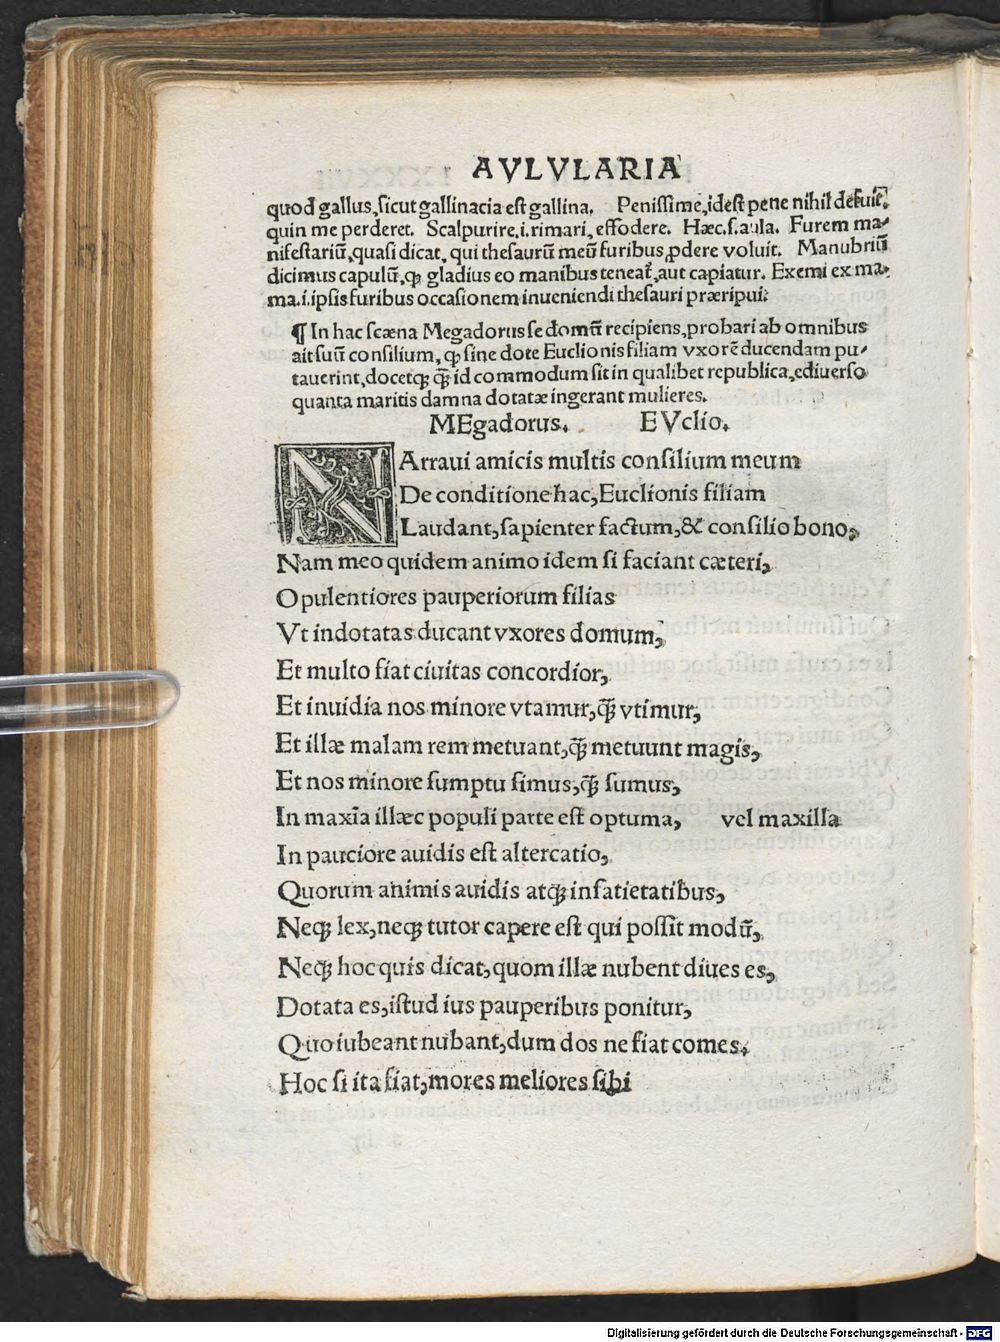 AVLVLARIA
quod gallus, sicut gallinacia est gallina. Penissime, idest pene nihil defuit.
quin me perderet. Scalpurire.i. rimari, effodere. Hæc.s. aula. Furem ma-
nifestariū, quasi dicat, qui thesaurū meū furibus ꝓdere voluit. Manubriū
dicimus capulū, ꝙ gladius eo manibus teneat᷑, aut capiatur. Exemi ex ma-
ma.i. ipsis furibus occasionem inueniendi thesauri præripui.
¶ In hac scæna Megadorus se domū recipiens, probari ab omnibus
ait suū consilium, ꝙ sine dote Euclionis filiam vxorē ducendam pu-
tauerint, docetqꝫ q̄ꝫ id commodum sit in qualibet republica, ediuerso
quanta maritis damna dotatæ ingerant mulieres.
MEgadorus. EVclio.
NArraui amicis multis consilium meum
De conditione hac, Euclionis filiam
Laudant, sapienter factum, & consilio bono,
Nam meo quidem animo idem si faciant cæteri,
Opulentiores pauperiorum filias
Vt indotatas ducant vxores domum,
Et multo fiat ciuitas concordior,
Et inuidia nos minore vtamur, q̄ꝫ vtimur,
Et illæ malam rem metuant, q̄ꝫ metuunt magis,
Et nos minore sumptu simus, q̄ꝫ sumus,
In maxīa illæc populi parte est optuma, vel maxilla
In pauciore auidis est altercatio,
Quorum animis auidis atqꝫ insatietatibus,
Neqꝫ lex, neqꝫ tutor capere est qui possit modū,
Neqꝫ hoc quis dicat, quom illæ nubent diues es,
Dotata es, istud ius pauperibus ponitur,
Quo iubeant nubant, dum dos ne fiat comes.
Hoc si ita fiat, mores meliores sibi
Digitalisierung gefördert durch die Deutsche Forschungsgemeinschaft - DFG